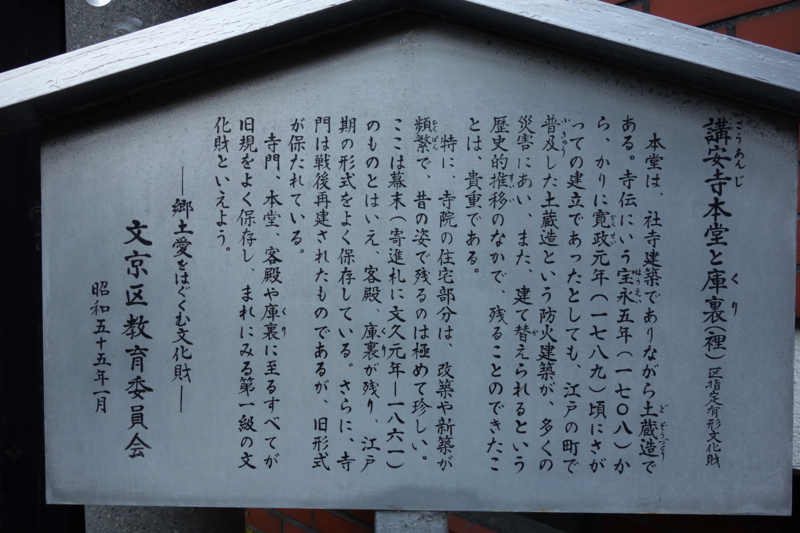 講安寺本堂と庫裏(裡) 区指定有形文化財
本堂は、社寺建築でありながら土蔵造で
ある。寺伝にいう宝永五年(一七〇八)か
ら、かりに寛政元年(一七八九)頃にさが
っての建立であったとしても、江戸の町で
普及した土蔵造という防火建築が、多くの
災害にあい、また、建て替えられるという
歴史的推移のなかで、残ることのできたこ
とは、貴重である。
特に、寺院の住宅部分は、改築や新築が
頻繁で、昔の姿で残るのは極めて珍しい。
ここは幕末(寄進札に文久元年―一八六一)
のものとはいえ、客殿、庫裏が残り、江戸
期の形式をよく保存している。さらに、寺
門は戦後再建されたものであるが、旧形式
が保たれている。
寺門、本堂、客殿や庫裏に至るすべてが
旧規をよく保存し、まれにみる第一級の文
化財といえよう。
―郷土愛をはぐくむ文化財―
文京区教育委員会
昭和五十五年一月